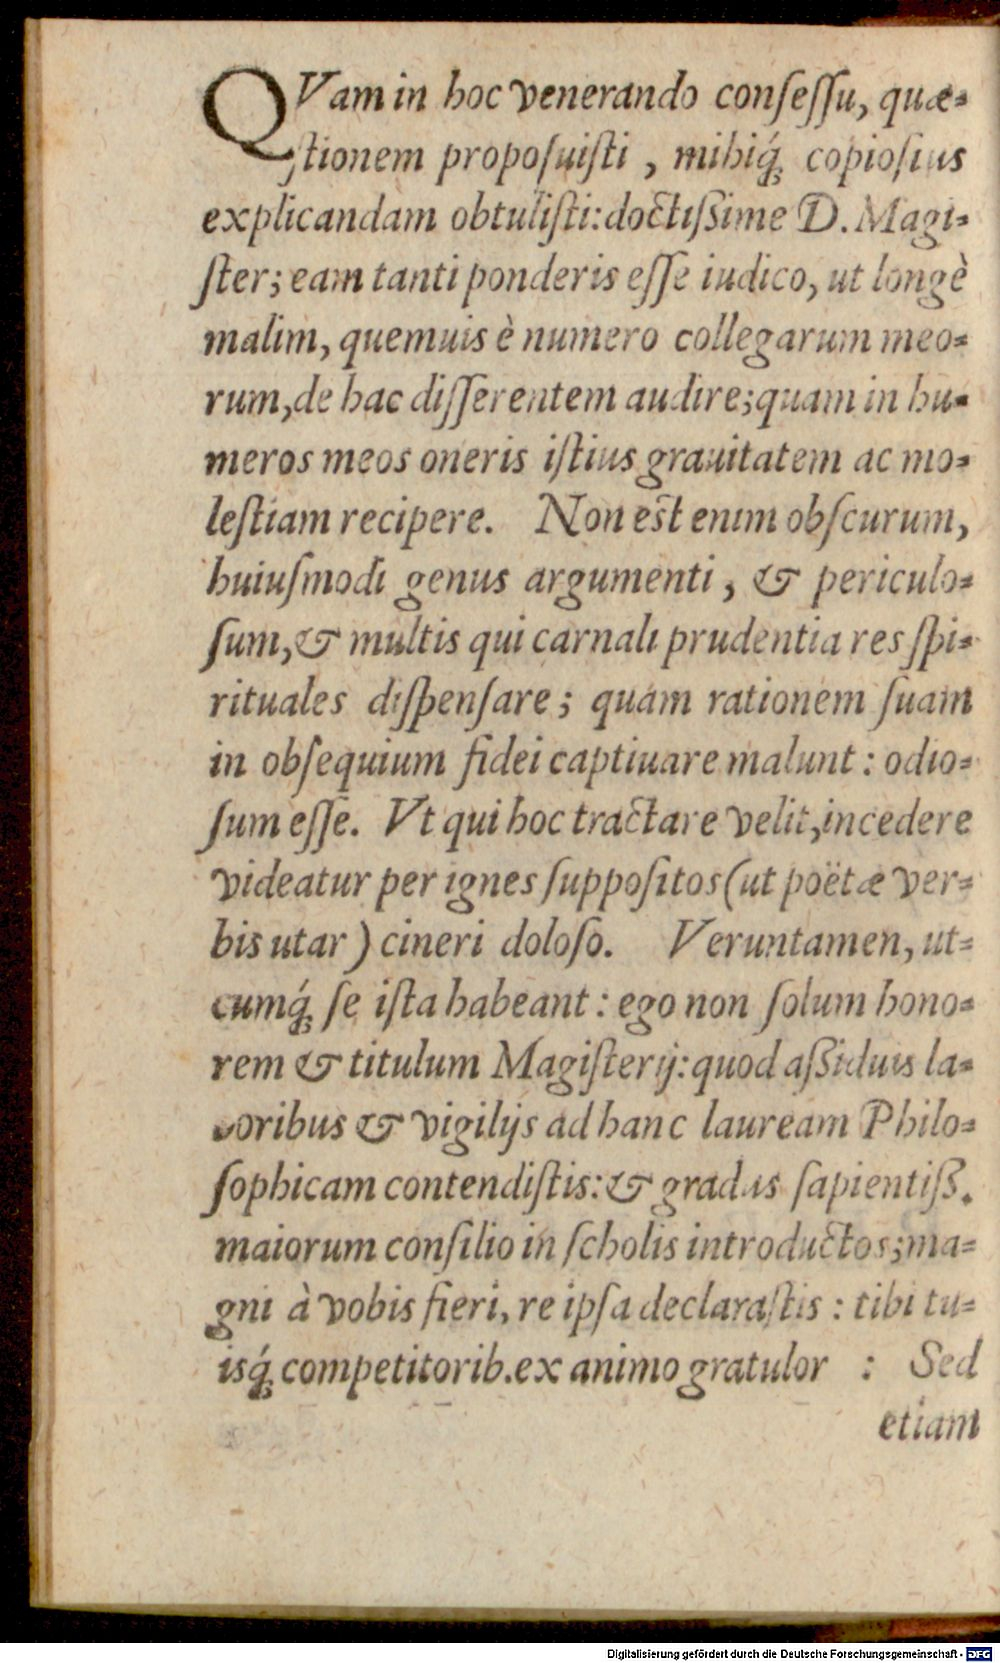 QVam in hoc venerando conſeſſu, quæ-
ſtionem propoſuiſti, mihiq́; copioſius
explicandam obtuliſti: doctiſsime D. Magi-
ſter; eam tanti ponderis eſſe iudico, ut longè
malim, quemuis è numero collegarum meo-
rum, de hac diſſerentem audire; quam in hu-
meros meos oneris iſtius grauitatem ac mo-
leſtiam recipere. Non eſt enim obſcurum,
huiuſmodi genus argumenti, & periculo-
ſum, & multis qui carnali prudentia res ſpi-
rituales diſpenſare; quam rationem ſuam
in obſequium fidei captiuare malunt: odio-
ſum eſſe. Vt qui hoc tractare velit, incedere
videatur per ignes ſuppoſitos (ut poëtæ ver-
bis utar) cineri doloſo. Veruntamen, ut-
cumq́; ſe iſta habeant: ego non ſolum hono-
rem & titulum Magiſterij: quod aſsiduis la-
boribus & vigilijs ad hanc lauream Philo-
ſophicam contendiſtis: & gradus ſapientiſs.
maiorum conſilio in ſcholis introductos; ma-
gni à vobis fieri, re ipſa declaraſtis: tibi tu-
isq́; competitorib. ex animo gratulor: Sed
etiam
Digitalisierung gefördert durch die Deutsche Forschungsgemeinschaft - DFG